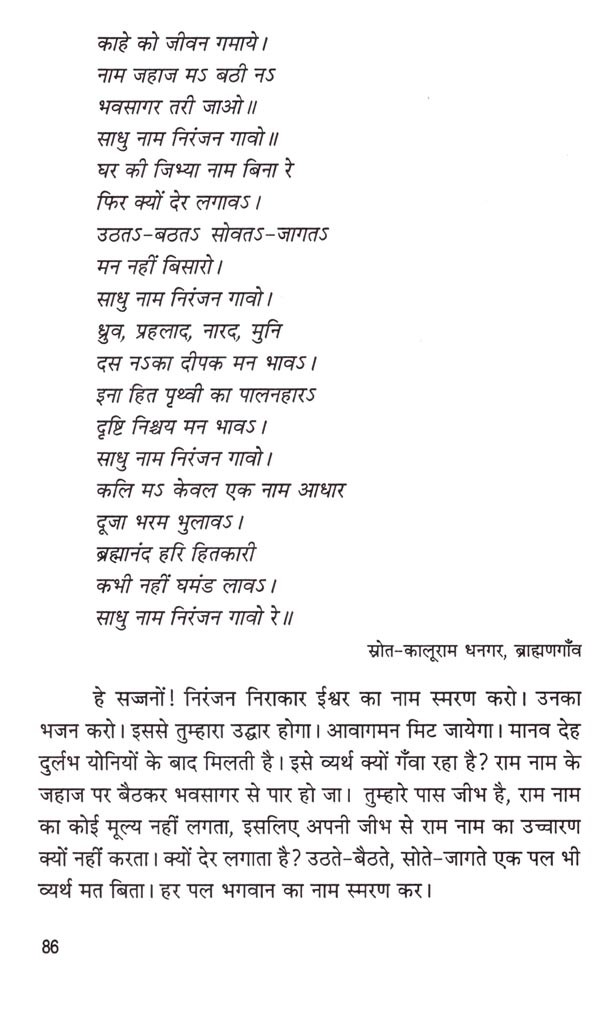 काहे को जीवन गमाये।
नाम जहाज मऽ बठी नऽ
भवसागर तरी जाओ॥
साधु नाम निरंजन गावो॥
घर की जिभ्या नाम बिना रे
फिर क्यों देर लगावऽ।
उठतऽ-बठतऽ सोवतऽ-जागतऽ
मन नहीं बिसारो।
साधु नाम निरंजन गावो।
ध्रुव, प्रहलाद, नारद, मुनि
दस नऽका दीपक मन भावऽ।
इना हित पृथ्वी का पालनहारऽ
दृष्टि निश्चय मन भावऽ।
साधु नाम निरंजन गावो।
कलि मऽ केवल एक नाम आधार
दूजा भरम भुलावऽ।
ब्रह्मानंद हरि हितकारी
कभी नहीं घमंड लावऽ।
साधु नाम निरंजन गावो रे॥
स्रोत-कालूराम धनगर, ब्राह्मणगाँव
हे सज्जनों! निरंजन निराकार ईश्वर का नाम स्मरण करो। उनका
भजन करो। इससे तुम्हारा उद्धार होगा। आवागमन मिट जायेगा। मानव देह
दुर्लभ योनियों के बाद मिलती है। इसे व्यर्थ क्यों गँवा रहा है? राम नाम के
जहाज पर बैठकर भवसागर से पार हो जा। तुम्हारे पास जीभ है, राम नाम
का कोई मूल्य नहीं लगता, इसलिए अपनी जीभ से राम नाम का उच्चारण
क्यों नहीं करता। क्यों देर लगाता है? उठते-बैठते, सोते-जागते एक पल भी
व्यर्थ मत बिता। हर पल भगवान का नाम स्मरण कर।
86